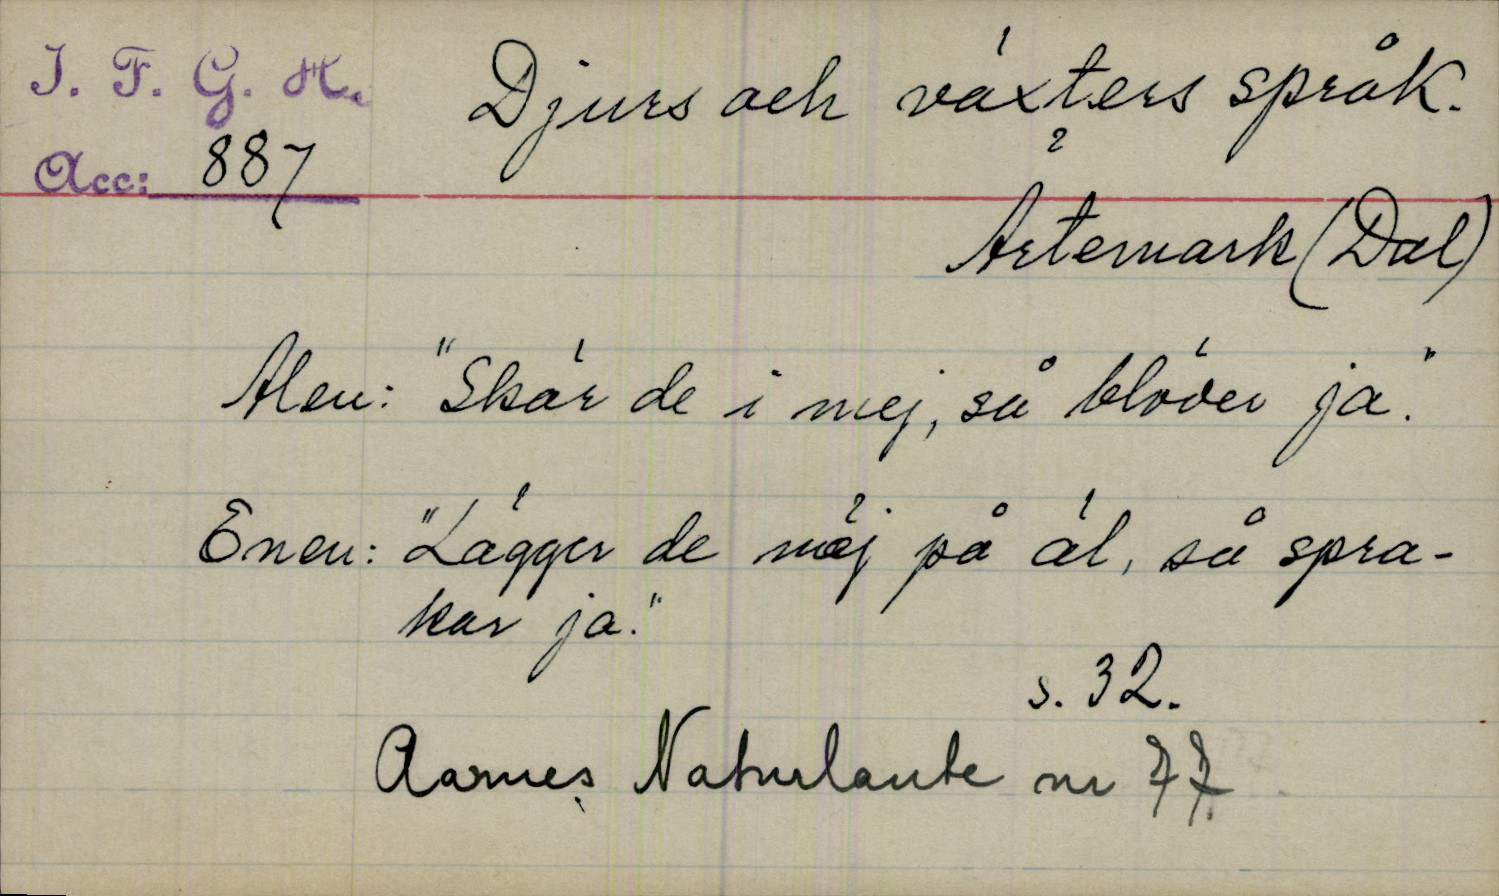 I. F. G. H.
Djurs och växters språk.
Acc: 887
Artemark (Dal)
Alen: "Skär de i mej, så blöder ja."
Enen: "Lägger de mäj på äl, så spra-
kar ja."
s. 32.
Aarnes Naturlaute nr 77.